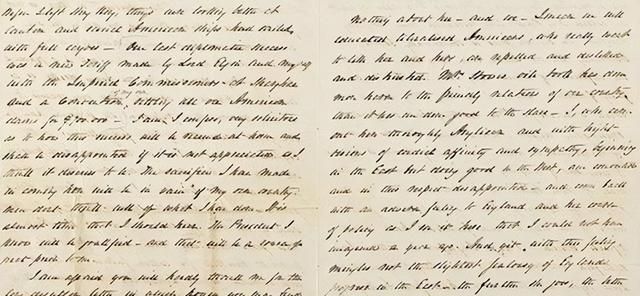 When I left they, things were looking better at
Canton and several American ships had sailed
with full cargoes — Our last diplomatic success
was a new Tariff made by Lord Elgin and myself
with the Imperial Commissioners at Shanghai
and a Convention, of my own, settling all our American
claims for
I am I confess, very solicitous
as to how this success will be received at home and
shall be disappointed if it is not appreciated as I
think it deserves to be. The sacrifices I have made
in coming here will be in vain if my own country
men don't think well of what I have done. It is
almost time that I should hear. The President I
know will be gratified — and that will be a source of
great pride to me.
I am afraid you will hardly thank me for this
long letter in which however you may find
nothing about her — and we — I mean we well
educated liberalised Americans, who really want
to like her and hers are repelled and disliked
and distrusted. Mrs Stowe's vile book has done
more harm to the friendly relations of our country
than it has done good to the slave — I, who came
out here thoroughly Anglican and with high
visions of cordial affinity and sympathy, beginning
in the East but doing good in the West, am
and in this respect disappointed — and come back
with an adverse feeling to England and her course
of policy as I see it here that I could not have
imagined a year ago. And yet with this feeling
mingles not the slightest jealousy of England's
progress in the East — the further she goes, the better